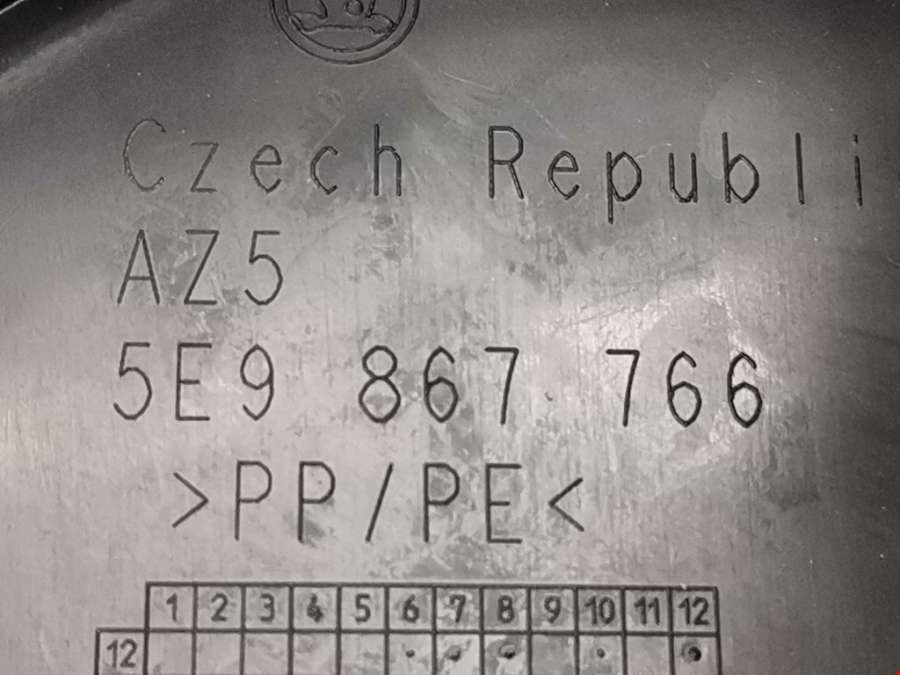 Czech Republi
AZ5
5E9 867 766
>PP/PE<
1 2 3 4 5 6 7 8 9 10 11 12
12